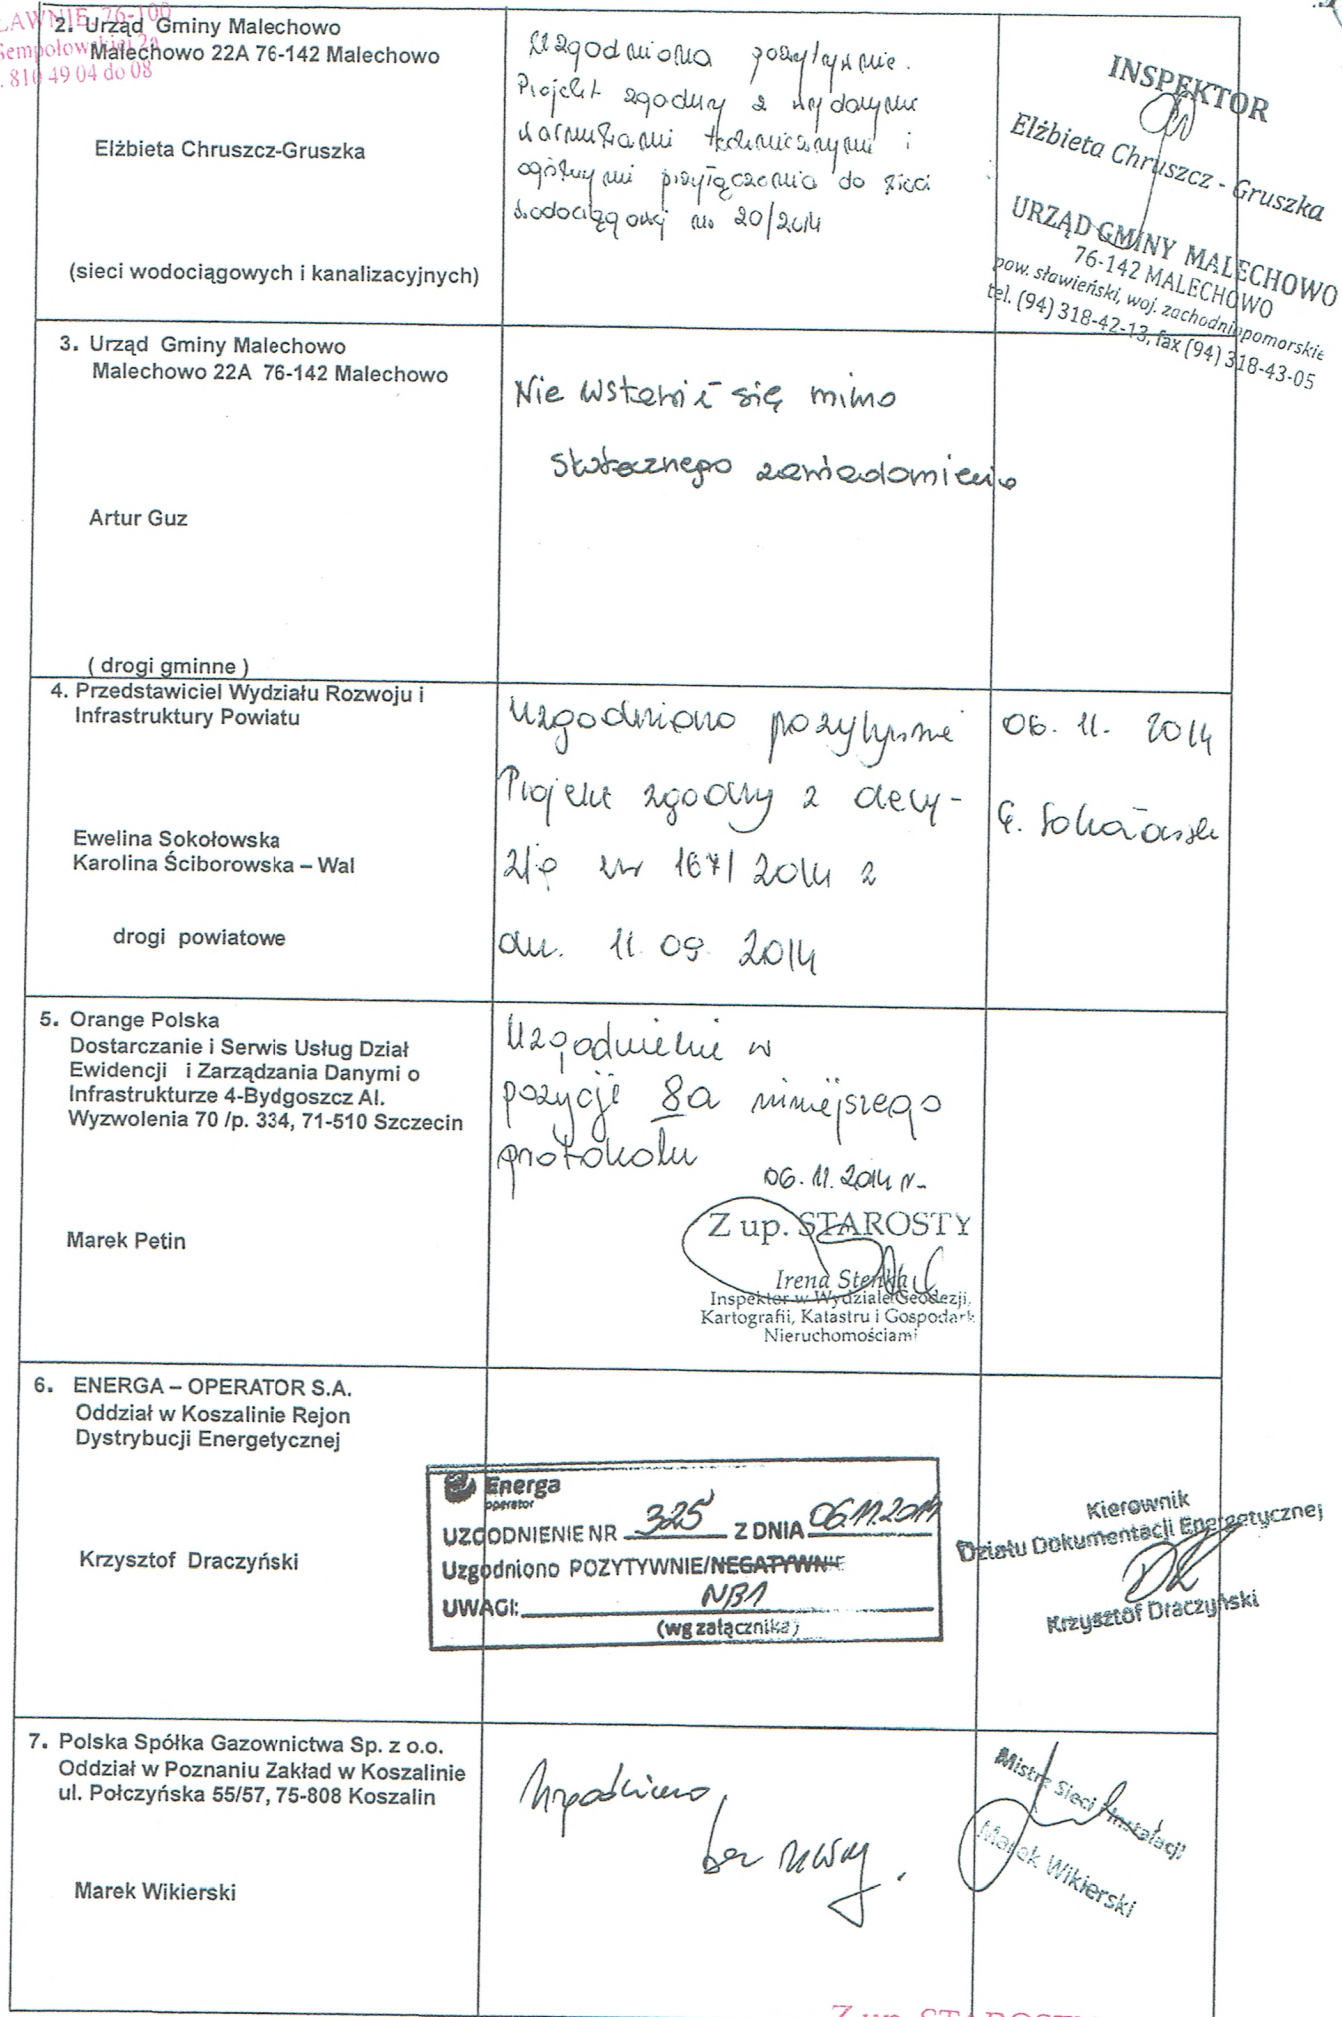 ŁAWNIE, 76-100
Sempołowskiej 2a
. 810 49 04 do 08
2. Urząd Gminy Malechowo
Malechowo 22A 76-142 Malechowo
Elżbieta Chruszcz-Gruszka
(sieci wodociągowych i kanalizacyjnych)
Uzgodniono pozytywnie.
Projekt zgodny z wydanymi
warunkami technicznymi i
ogólnymi przyłączenia do sieci
wodociągowej nr 20/2014
INSPEKTOR
Elżbieta Chruszcz - Gruszka
URZĄD GMINY MALECHOWO
76-142 MALECHOWO
pow. sławieński, woj. zachodniopomorskie
tel. (94) 318-42-13, fax (94) 318-43-05
3. Urząd Gminy Malechowo
Malechowo 22A 76-142 Malechowo
Artur Guz
( drogi gminne )
Nie wstawił się mimo
skutecznego zawiadomienia
4. Przedstawiciel Wydziału Rozwoju i
Infrastruktury Powiatu
Ewelina Sokołowska
Karolina Ściborowska – Wal
drogi powiatowe
Uzgodniono pozytywnie
Projekt zgodny z decy-
zją nr 167/2014 z
dn. 11.09.2014
06.11.2014
E. Sokołowska
5. Orange Polska
Dostarczanie i Serwis Usług Dział
Ewidencji i Zarządzania Danymi o
Infrastrukturze 4-Bydgoszcz Al.
Wyzwolenia 70 /p. 334, 71-510 Szczecin
Marek Petin
Uzgodnienie w
pozycji 8a niniejszego
protokołu
06.11.2014 r.
Z up. STAROSTY
Irena Stenka
Inspektor w Wydziale Geodezji,
Kartografii, Katastru i Gospodark
Nieruchomościami
6. ENERGA – OPERATOR S.A.
Oddział w Koszalinie Rejon
Dystrybucji Energetycznej
Krzysztof Draczyński
Energa
operator
UZGODNIENIE NR 325 Z DNIA 06.11.2014
Uzgodniono POZYTYWNIE/NEGATYWNIE
UWAGI: NB1
(wg załącznika)
Kierownik
Działu Dokumentacji Energetycznej
Krzysztof Draczyński
7. Polska Spółka Gazownictwa Sp. z o.o.
Oddział w Poznaniu Zakład w Koszalinie
ul. Połczyńska 55/57, 75-808 Koszalin
Marek Wikierski
Uzgodniono
bez uwag.
Mistrz Sieci i Instalacji
Marek Wikierski
Z up. STAROSTY